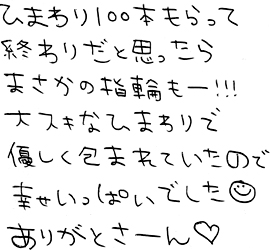 ひまわり100本もらって
終わりだと思ったら
まさかの指輪もー!!!
大スキなひまわりで
優しく包まれていたので
幸せいっぱいでした☺
ありがとさーん♡